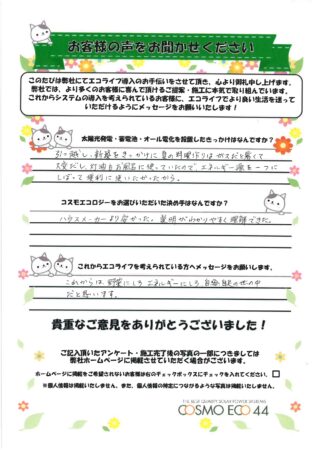 お客様の声をお聞かせください
このたびは弊社にてエコライフ導入のお手伝いをさせて頂き、心より御礼申し上げます。
弊社では、より多くのお客様に喜んで頂けるご提案・施工に本気で取り組んでいます。
これからシステムの導入を考えられているお客様に、エコライフでより良い生活を送って
いただけるようにメッセージをお願いいたします！
太陽光発電・蓄電池・オール電化を設置したきっかけはなんですか？
引っ越し、新築をきっかけに 夏の料理作りは ガスだと暑くて
大変だし、灯油もお風呂に使っていたので、エネルギー源を一つに
しぼって便利に使いたかったから。
コスモエコロジーをお選びいただいた決め手はなんですか？
ハウスメーカーより安かった。説明がわかりやすく理解できた。
これからエコライフを考えられている方へメッセージをお願いします。
これからは 野菜にしろ エネルギーにしろ 自給自足の世の中
だと思います。
貴重なご意見をありがとうございました！
ご記入頂いたアンケート・施工完了後の写真の一部につきましては
弊社ホームページに掲載させていただく場合がございます。
ホームページに掲載をご希望されないお客様は右のチェックボックスにチェックを入れてください。
※個人情報は掲載いたしません。また、個人情報の特定につながるような写真は掲載いたしません。
THE BEST QUALITY SOLAR POWER SYSTEMS
COSMO ECO 44